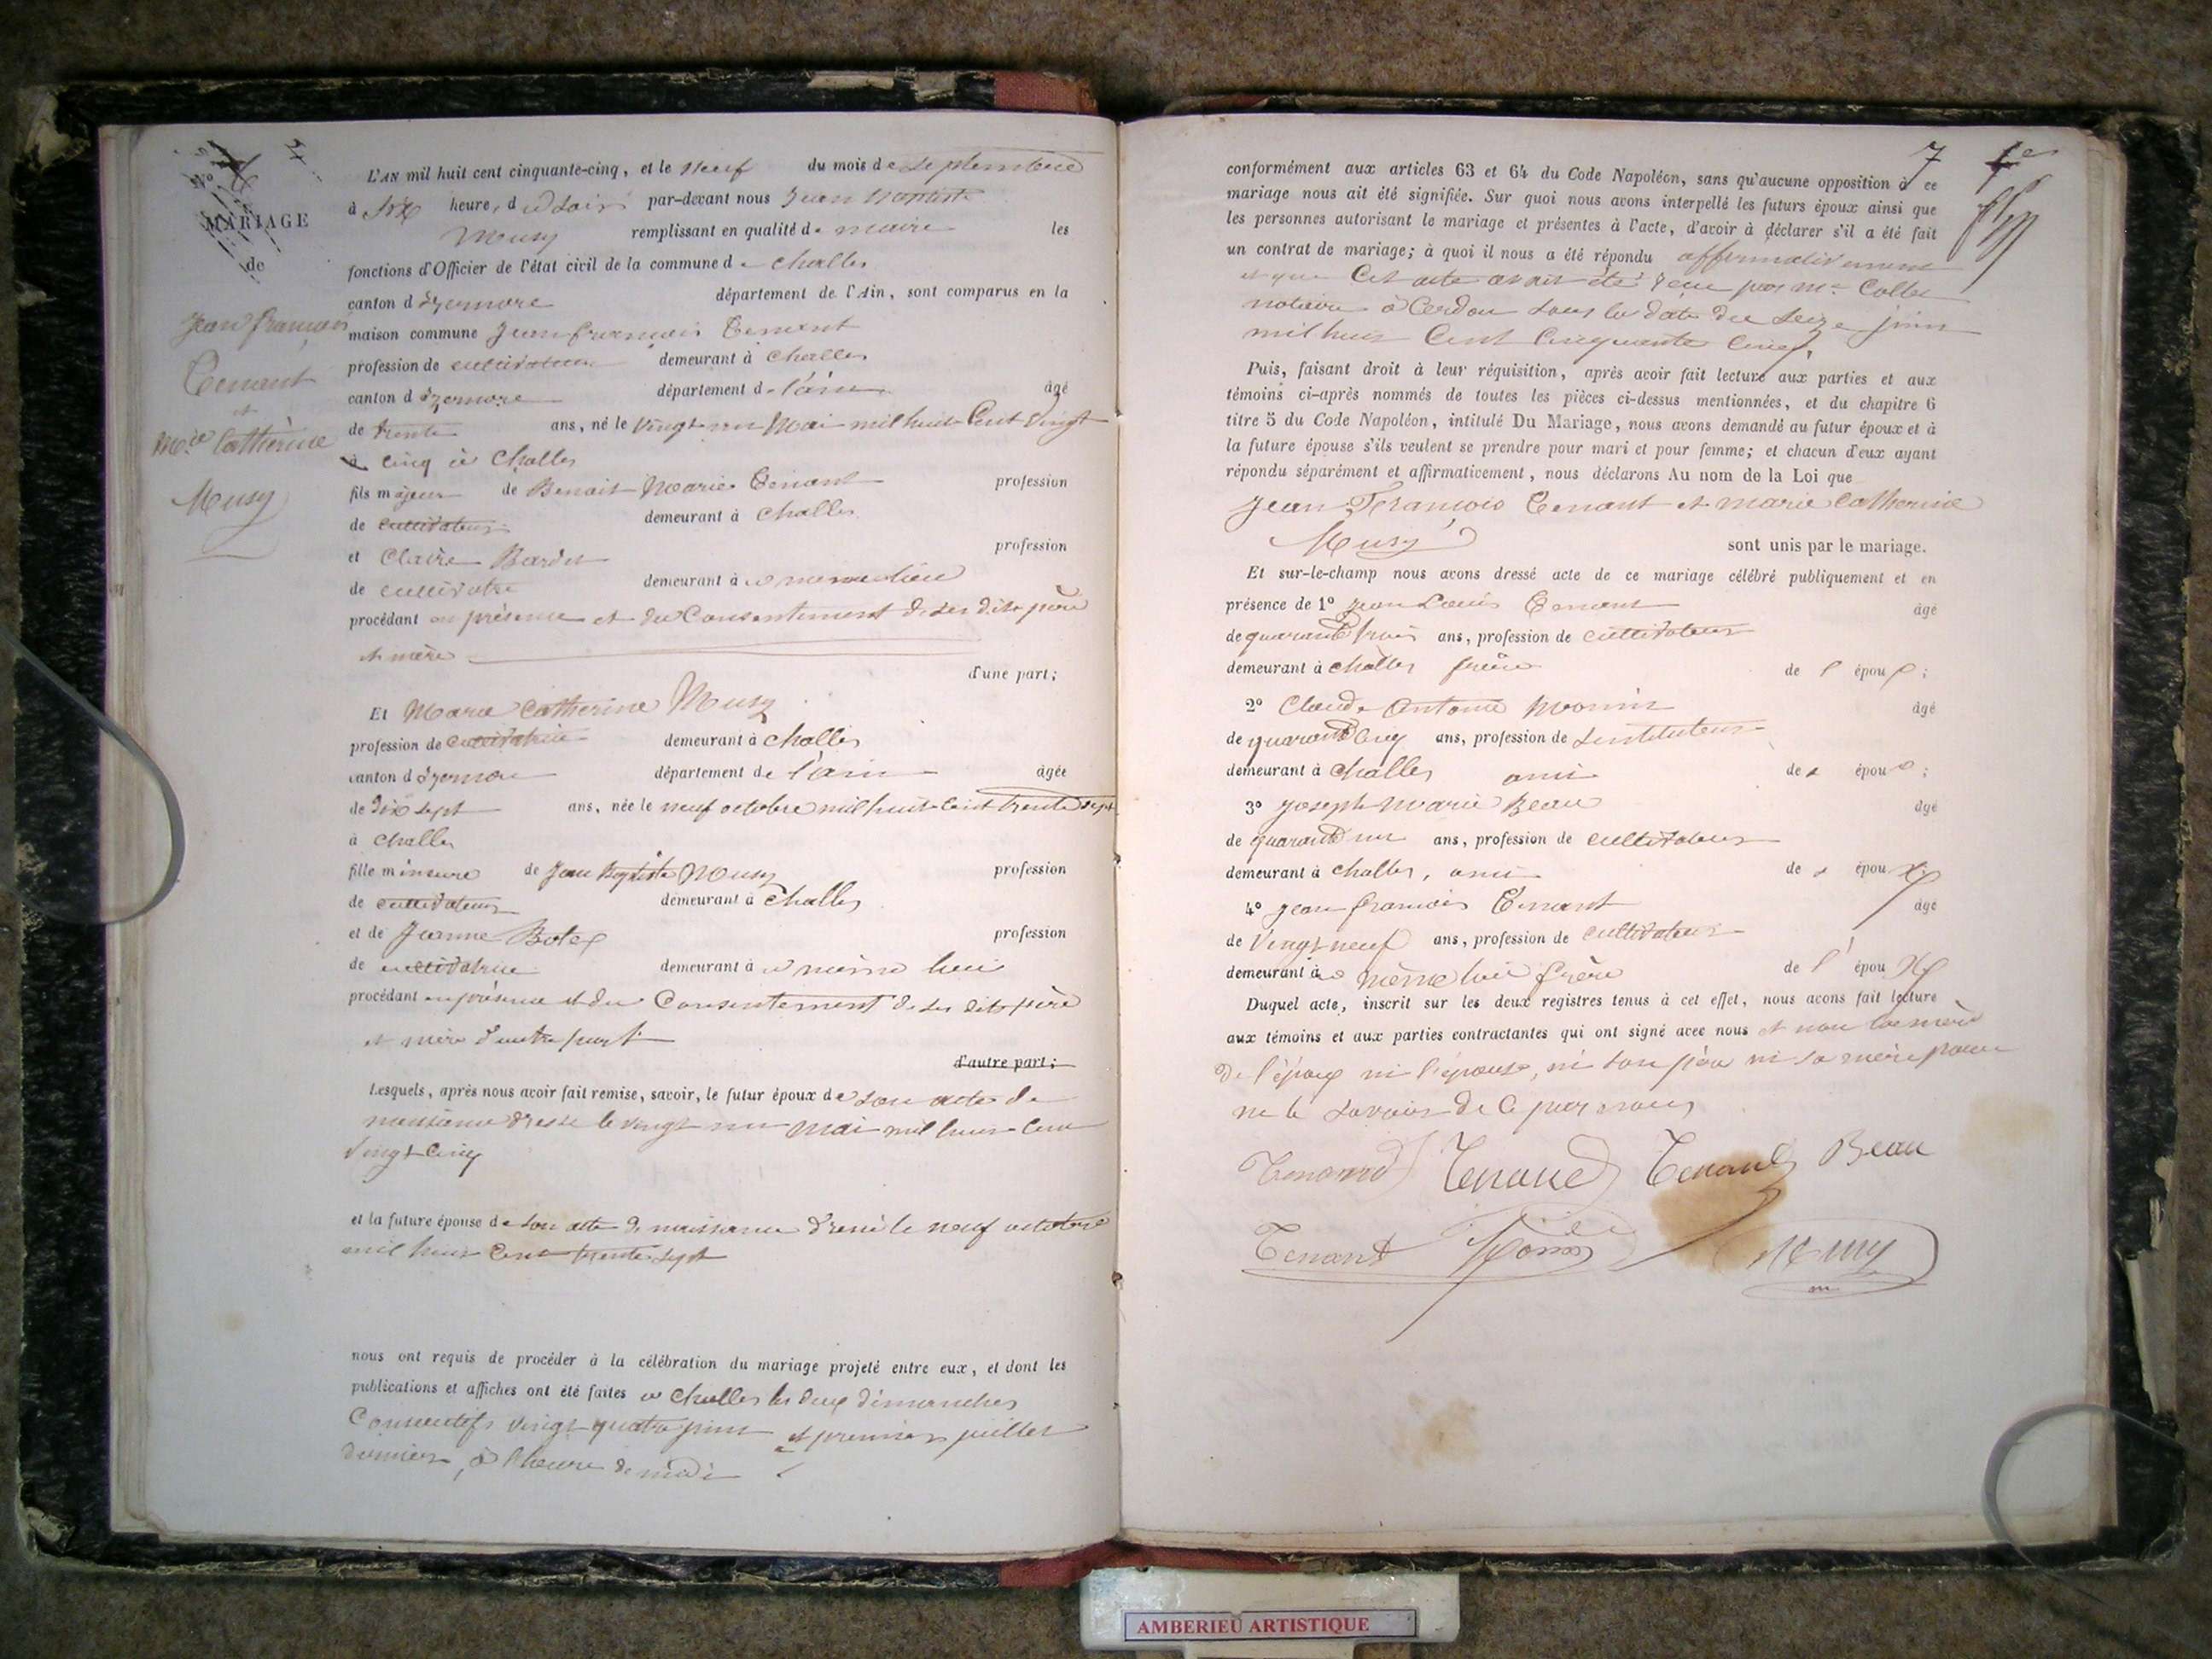 MARIAGE
de
Jean françois
Tenant
et
Mie Catherine
Musy
L'AN mil huit cent cinquante-cinq, et le neuf du mois de septembre
à six heure, du soir par-devant nous Jean Baptiste
Musy remplissant en qualité de maire les
fonctions d'Officier de l'état civil de la commune de Challes
canton d'izernore département de l'Ain, sont comparus en la
maison commune Jean françois Tenant
profession de cultivateur demeurant à Challes
canton d'izernore département de l'ain âgé
de trente ans, né le vingt un Mai mil huit Cent vingt
cinq à Challes
fils majeur de Benoit Marie Tenant profession
de cultivateur demeurant à Challes
et Claire Bardet profession
de cultivatrice demeurant à même lieu
procédant en présence et du Consentement de ses dits père
et mère
d'une part;
Et Marie Catherine Musy
profession de cultivatrice demeurant à Challes
canton d'izernore département de l'ain âgée
de dix sept ans, née le neuf octobre mil huit cent trente sept
à Challes
fille mineure de Jean Baptiste Musy profession
de cultivateur demeurant à Challes
et de Jeanne profession
de cultivatrice demeurant à même lieu
procédant en présence et du Consentement de ses dits père
et mère d'autre part
d'autre part;
Lesquels, après nous avoir fait remise, savoir, le futur époux de son acte de
naissance dressé le vingt un mai mil huit cent
vingt cinq
et la future épouse de son acte de naissance dressé le neuf octobre
mil huit Cent trente sept
nous ont requis de procéder à la célébration du mariage projeté entre eux, et dont les
publications et affiches ont été faites à Challes les deux dimanches
Consecutifs vingt quatre juin et premier juillet
dernier, à l'heure de midi
7
conformément aux articles 63 et 64 du Code Napoléon, sans qu'aucune opposition à ce
mariage nous ait été signifiée. Sur quoi nous avons interpellé les futurs époux ainsi que
les personnes autorisant le mariage et présentes à l'acte, d'avoir à déclarer s'il a été fait
un contrat de mariage; à quoi il nous a été répondu affirmativement
et que Cet acte avait été reçu par Me
notaire à Cerdon sous la date du seize juin
mil huit Cent Cinquante Cinq.
Puis, faisant droit à leur réquisition, après avoir fait lecture aux parties et aux
témoins ci-après nommés de toutes les pièces ci-dessus mentionnées, et du chapitre 6
titre 5 du Code Napoléon, intitulé Du Mariage, nous avons demandé au futur époux et à
la future épouse s'ils veulent se prendre pour mari et pour femme; et chacun d'eux ayant
répondu séparément et affirmativement, nous déclarons Au nom de la Loi que
Jean François Tenant et marie Catherine
Musy sont unis par le mariage.
Et sur-le-champ nous avons dressé acte de ce mariage célébré publiquement et en
présence de 1° Jean Louis Tenant âgé
de quarante trois ans, profession de cultivateur
demeurant à Challes frère de l'époux;
2° Claude Antoine Monin âgé
de quarante cinq ans, profession de instituteur
demeurant à Challes ami de époux;
3° Joseph Marie Beau âgé
de quarante un ans, profession de cultivateur
demeurant à Challes, ami de époux
4° Jean françois Tenant âgé
de vingt neuf ans, profession de cultivateur
demeurant à même lieu frère de l'époux
Duquel acte, inscrit sur les deux registres tenus à cet effet, nous avons fait lecture
aux témoins et aux parties contractantes qui ont signé avec nous et non la mère
de l'époux ni l'épouse, ni son père ni sa mère pour
ne le savoir de ce par nous
Tenand Tenand Tenand Beau
Tenant Monin Musy
AMBERIEU ARTISTIQUE